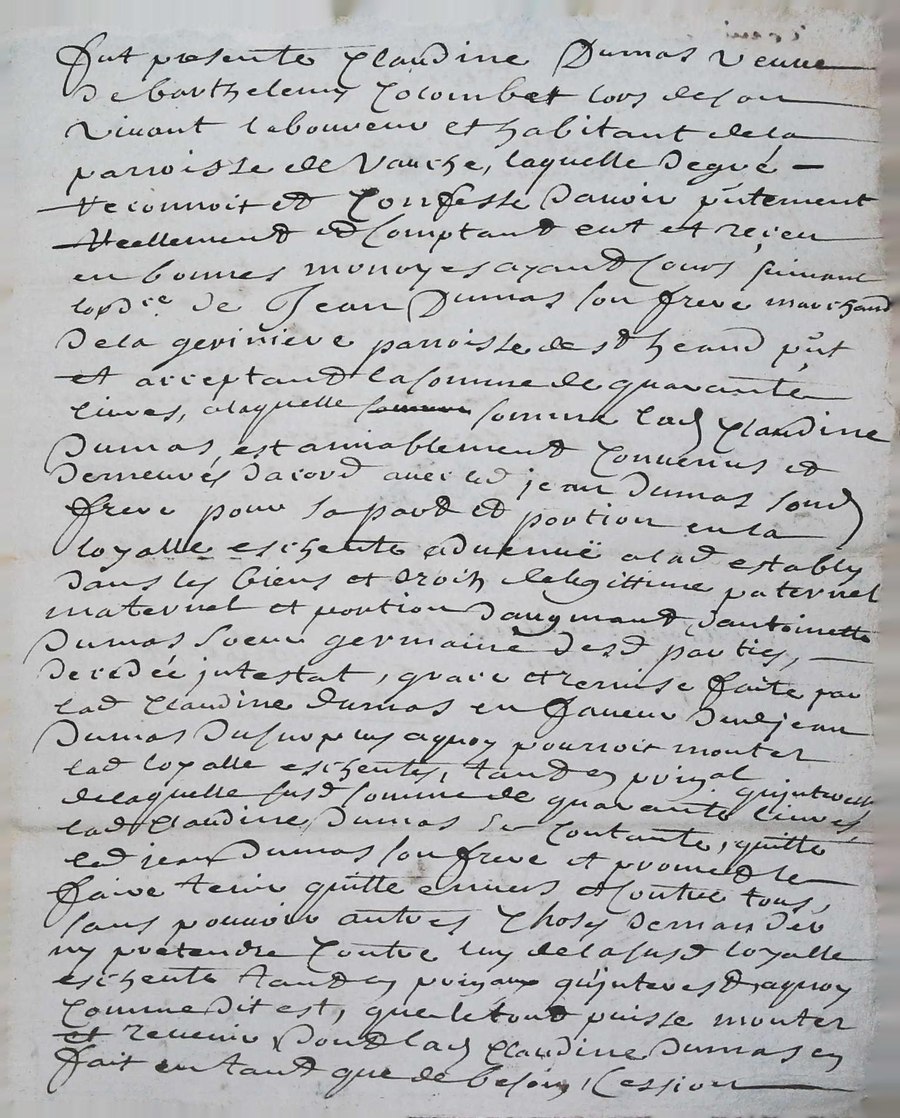 fut presente Claudine Dumas veuve
de barthelemy Colombet lors de son
vivant laboureur et habitant de la
parroisse de Vauche, laquelle de gré
reconnoit et Confesse davoir pntement
reellement et Comptant eut et reçeu
en bonnes monoyes ayant Cours suivant
lordce de Jean Dumas son frere marchand
de la geriniere parroisse de st heand pnt
et acceptant la somme de quarante
livres, a laquelle somme lad Claudine
Dumas, est amiablement Convenus et
demeurés dacord avec led jean Dumas sond
frere pour sa part et portion en la
loyalle escheute advenuë a lad establye
dans les biens et droits de legittime paternel
maternel et portion daugmant dantoinette
Dumas soeur germaine desd parties,
decedée intestat, grace et remise faite par
lad Claudine dumas en faveur dud jean
Dumas du surplus a quoy pourroit monter
lad loyalle escheute, tant en prinpal
de laquelle susd somme de quarante livres
lad Claudine Dumas se contante, quitte
led jean Dumas son frere et promet le
faire tenir quitte envers et Contre tous,
sans pouvoir autres Choses demander
ny pretendre Contre luy de la susd loyalle
escheute tant en prinpaux quinterests a quoy
Comme dit est, que le tout puisse monter
et revenir, Dont lad Claudine Dumas en
fait en tant que de besoin, Cession